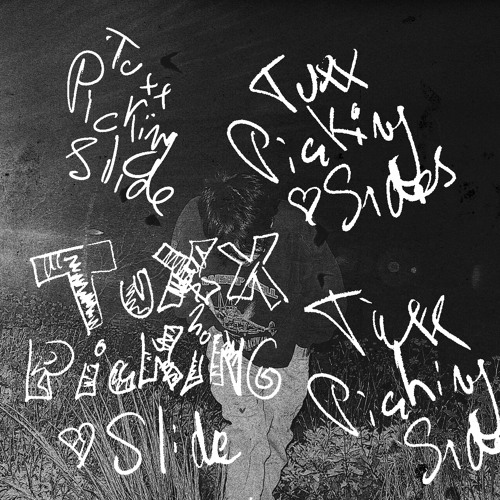 Tuxx
Picking
Slide
Tuxx
Picking
♡ Sides
TuXX
PicKING
♡ Slide
Tuxx
Picking
Sides